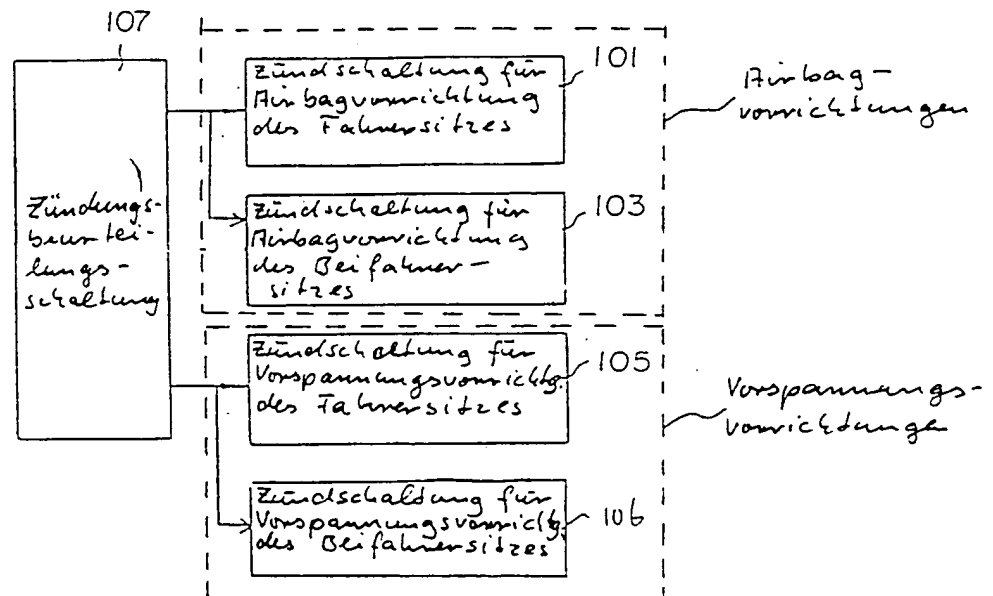 107
Zündungs-
beurtei-
lungs-
schaltung
Zündschaltung für
Airbagvorrichtung
des Fahrersitzes
101
Zündschaltung für
Airbagvorrichtung
des Beifahrer-
sitzes
103
Airbag-
vorrichtungen
Zündschaltung für
Vorspannungsvorrichtg.
des Fahrersitzes
105
Zündschaltung für
Vorspannungsvorrichtg.
des Beifahrersitzes
106
Vorspannungs-
vorrichtungen